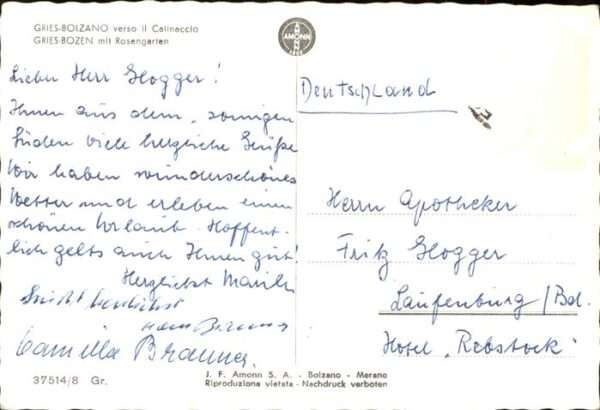 GRIES-BOLZANO verso il Catinaccio
GRIES-BOZEN mit Rosengarten
AMONN
Lieber Herr Glogger!
Ihnen aus dem sonnigen
Süden viele herzliche Grüße
Wir haben wunderschönes
Wetter und erleben einen
schönen Urlaub. Hoffent-
lich gehts auch Ihnen gut!
Herzlichst
Camilla
Deutschland
Herrn Apotheker
Fritz Glogger
Laufenburg/Bd.
Hotel "Rebstock"
37514/8 Gr.
J. F. Amonn S. A. - Bolzano - Merano
Riproduzione vietata - Nachdruck verboten